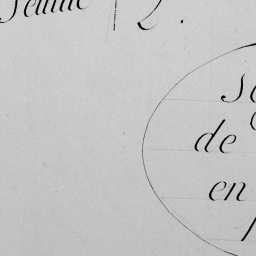 Feuille 2.
de
en